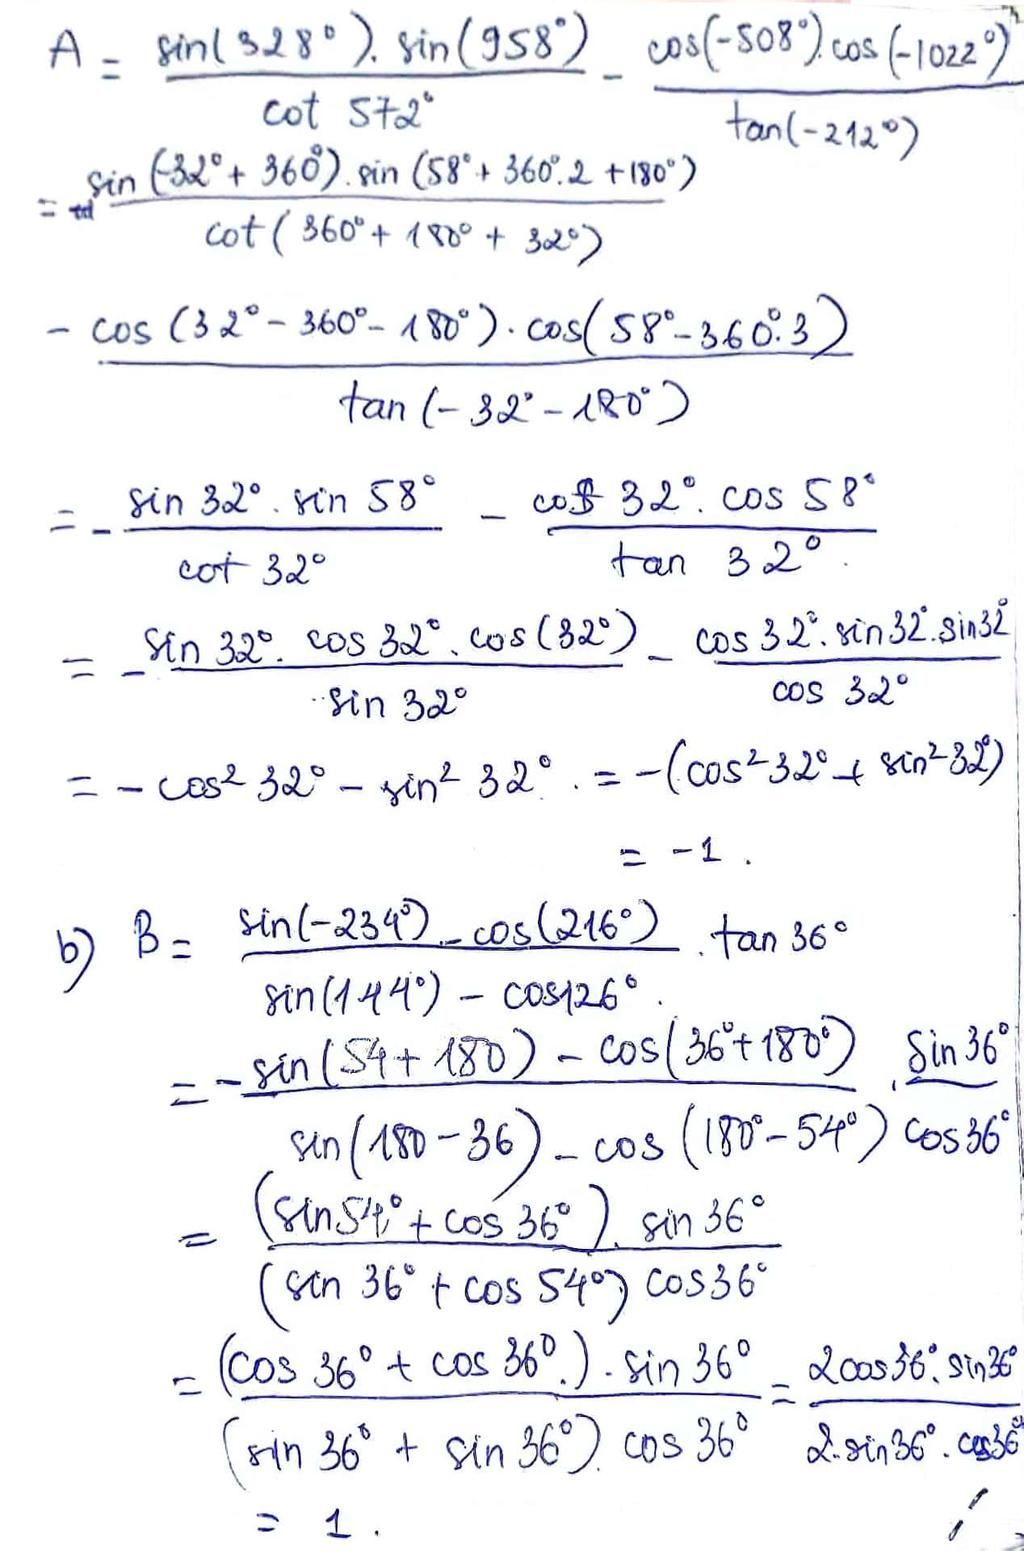 A = sin(328°). sin(958°) / cot 572° - cos(-508°). cos(-1022°) / tan(-212°)
= sin(-32° + 360°). sin (58° + 360°.2 + 180°) / cot (360° + 180° + 32°)
- cos (32° - 360° - 180°). cos(58° - 360°.3) / tan (-32° - 180°)
= - sin 32°. sin 58° / cot 32° - cos 32°. cos 58° / tan 32°.
= - sin 32°. cos 32°. cos(32°) / sin 32° - cos 32°. sin 32°. sin 32° / cos 32°
= - cos² 32° - sin² 32°. = -(cos² 32° + sin² 32°)
= -1.
b) B = sin(-234°) - cos(216°) / sin(144°) - cos126°. . tan 36°
= - sin (54 + 180) - cos(36° + 180°) / sin(180 - 36) - cos (180° - 54°) . sin 36° / cos 36°
= (sin 54° + cos 36°). sin 36° / (sin 36° + cos 54°) cos 36°
= (cos 36° + cos 36°.). sin 36° / (sin 36° + sin 36°). cos 36° = 2cos 36°. sin 36° / 2. sin 36°. cos 36°
= 1.